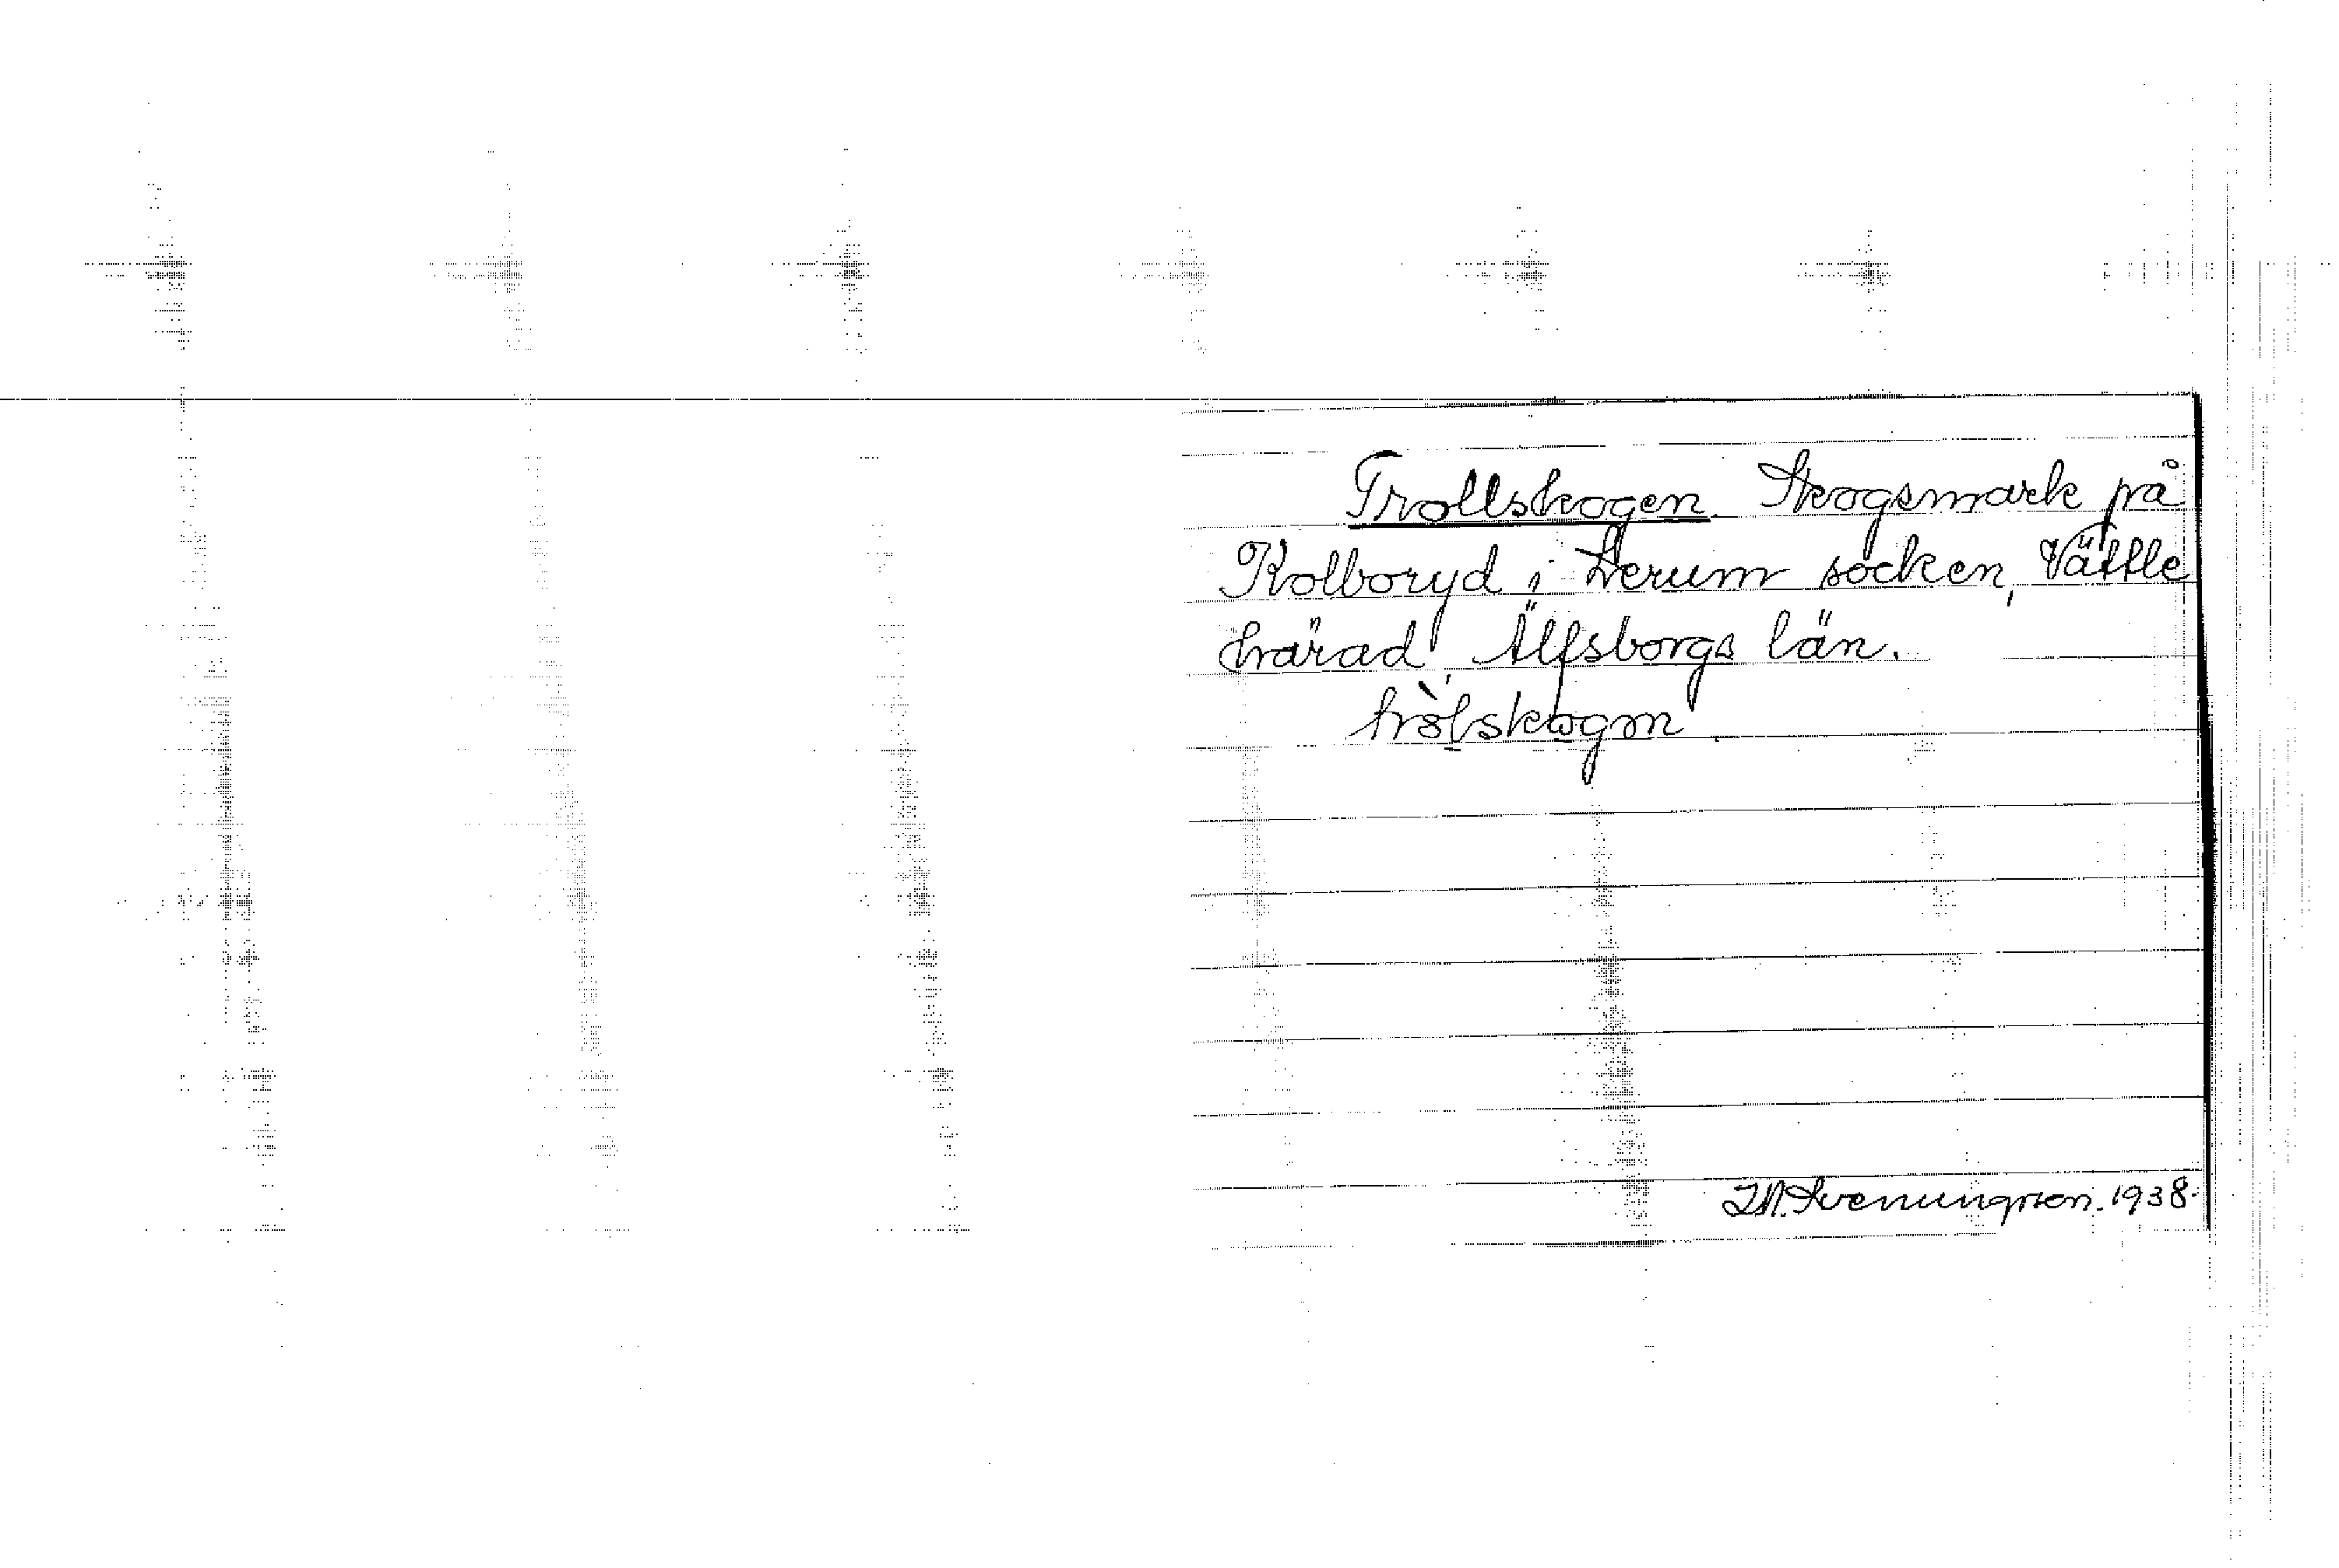 Trollskogen. Skogsmark på
Kolboryd i Lerum socken, Vättle
härad, Älfsborgs län.
tròlskogm
I.M. Svenungson. 1938.